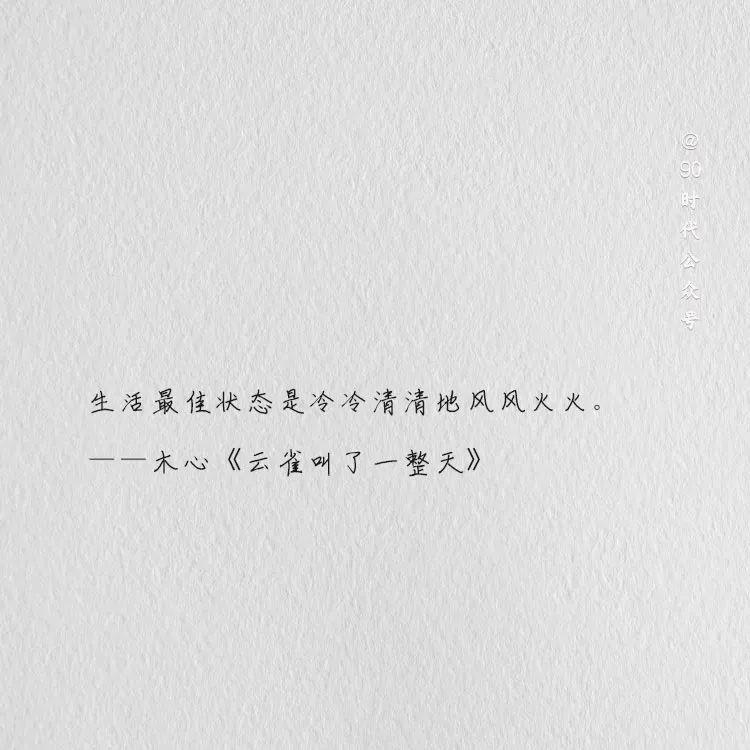 @90时代公众号
生活最佳状态是冷冷清清地风风火火。
——木心《云雀叫了一整天》